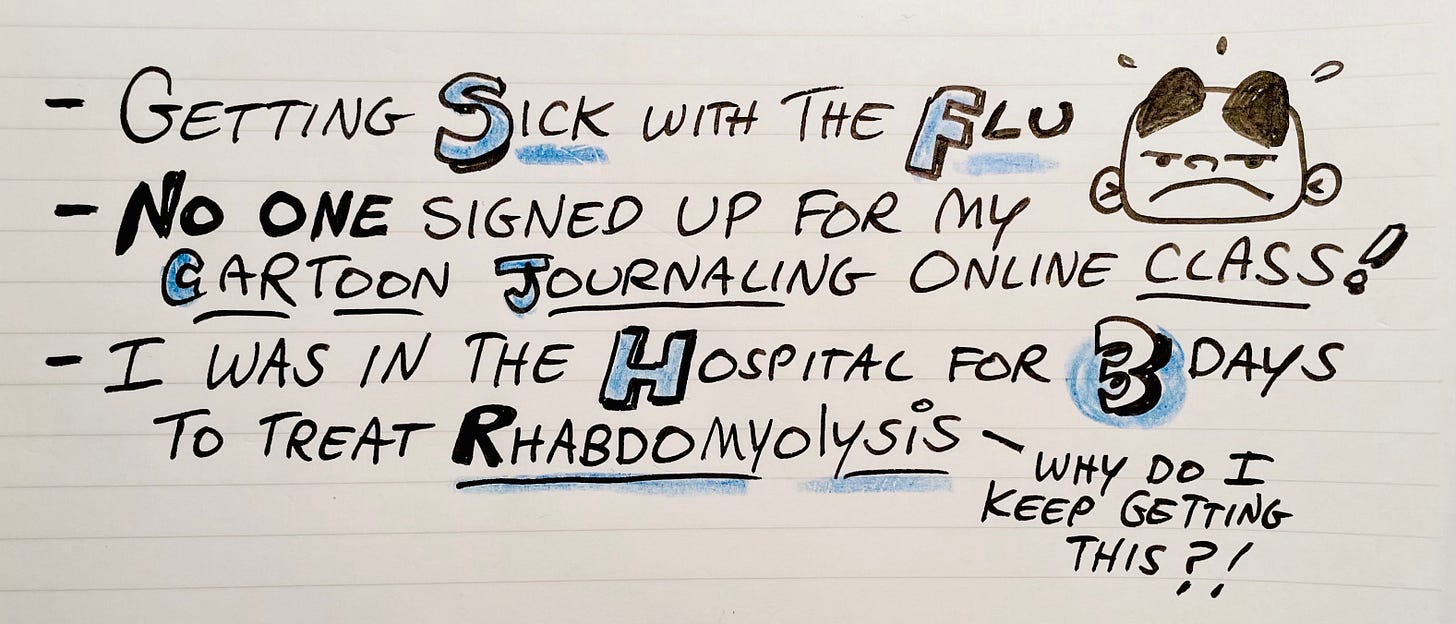 - GETTING SICK WITH THE FLU
- NO ONE SIGNED UP FOR MY
CARTOON JOURNALING ONLINE CLASS!
- I WAS IN THE HOSPITAL FOR 3 DAYS
TO TREAT RHABDOMYOlYSiS -
WHY DO I
KEEP GETTING
THIS?!